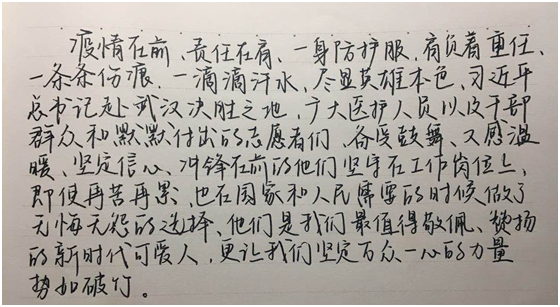 疫情在前、责任在肩、一身防护服、肩负着重任、
一条条伤痕、一滴滴汗水、尽显英雄本色、习近平
总书记赴武汉决胜之地、广大医护人员以及干部
群众和默默付出的志愿者们、备受鼓舞、又感温
暖、坚定信心、冲锋在前的他们坚守在工作岗位上、
即使再苦再累、也在国家和人民需要的时候做了
无悔无怨的选择、他们是我们最值得敬佩、赞扬
的新时代可爱人、更让我们坚定万众一心的力量
势如破竹。